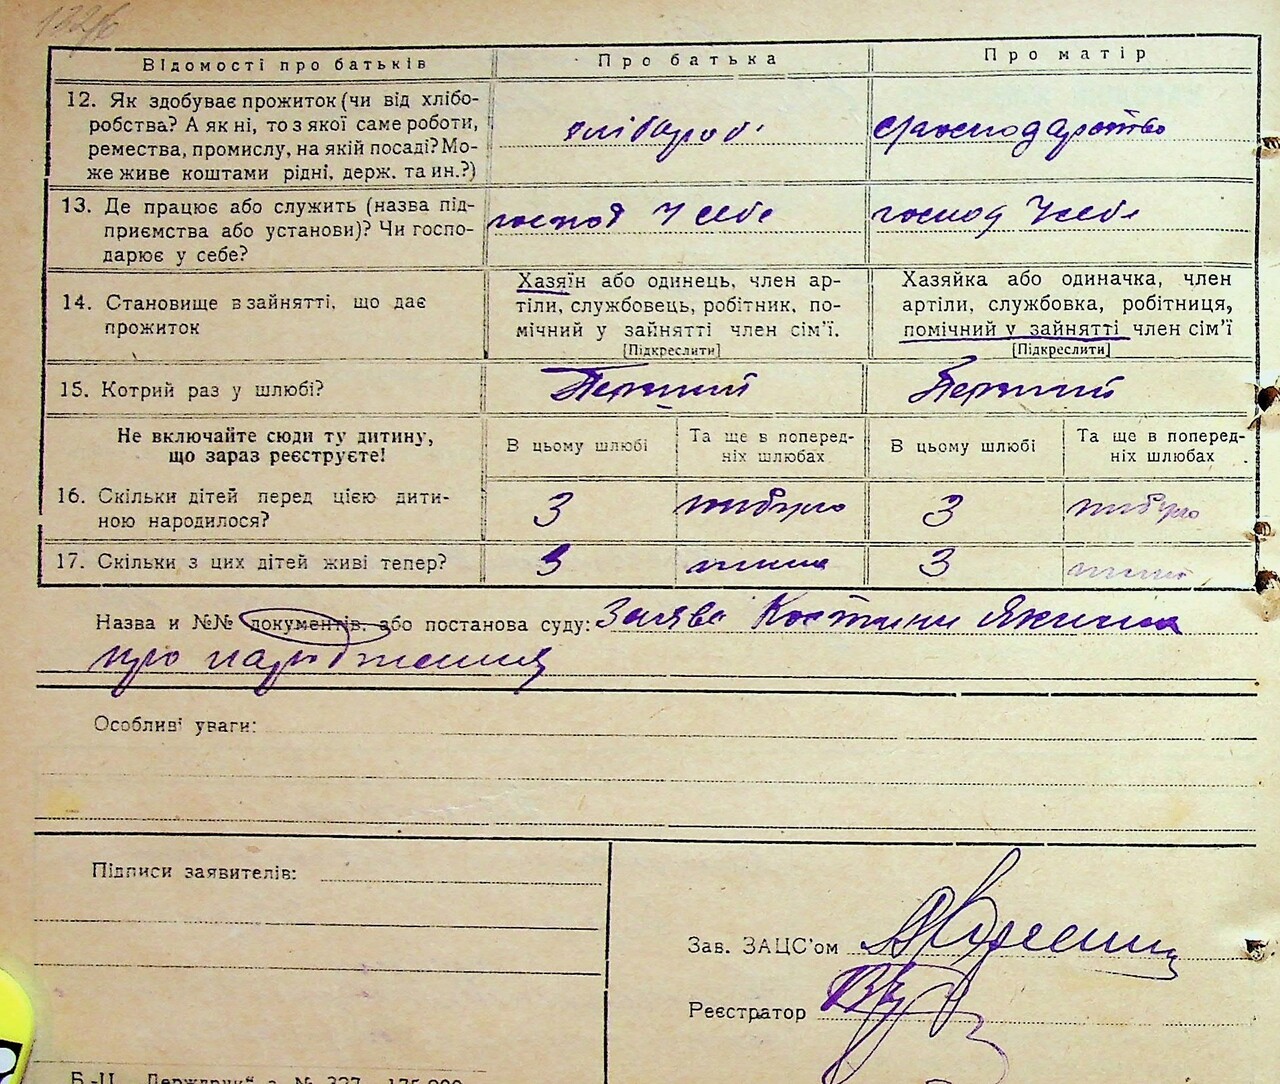 132б
Відомості про батьків
Про батька
Про матір
12. Як здобуває прожиток (чи від хлібо-
робства? А як ні, то з якої саме роботи,
ремества, промислу, на якій посаді? Мо-
же живе коштами рідні, держ. та ин.?)
хлібороб
с/господарство
13. Де працює або служить (назва під-
приємства або установи)? Чи госпо-
дарює у себе?
господ у себе
господ у себе
14. Становище в зайнятті, що дає
прожиток
Хазяїн або одинець, член ар-
тіли, службовець, робітник, по-
мічний у зайнятті член сім'ї.
[Підкреслити]
Хазяйка або одиначка, член
артіли, службовка, робітниця,
помічний у зайнятті член сім'ї
[Підкреслити]
15. Котрий раз у шлюбі?
Перший
Перший
Не включайте сюди ту дитину,
що зараз реєструєте!
В цьому шлюбі
Та ще в поперед-
ніх шлюбах
В цьому шлюбі
Та ще в поперед-
ніх шлюбах
16. Скільки дітей перед цією дити-
ною народилося?
3
небуло
3
небуло
17. Скільки з цих дітей живі тепер?
3
3
Назва и №№ документів. або постанова суду: Заява Костини Якима
про народження
Особливі уваги:
Підписи заявителів:
Зав. ЗАЦС'ом
Реєстратор
Б.-Ц. „Держдрук“ з. № 327—175.000